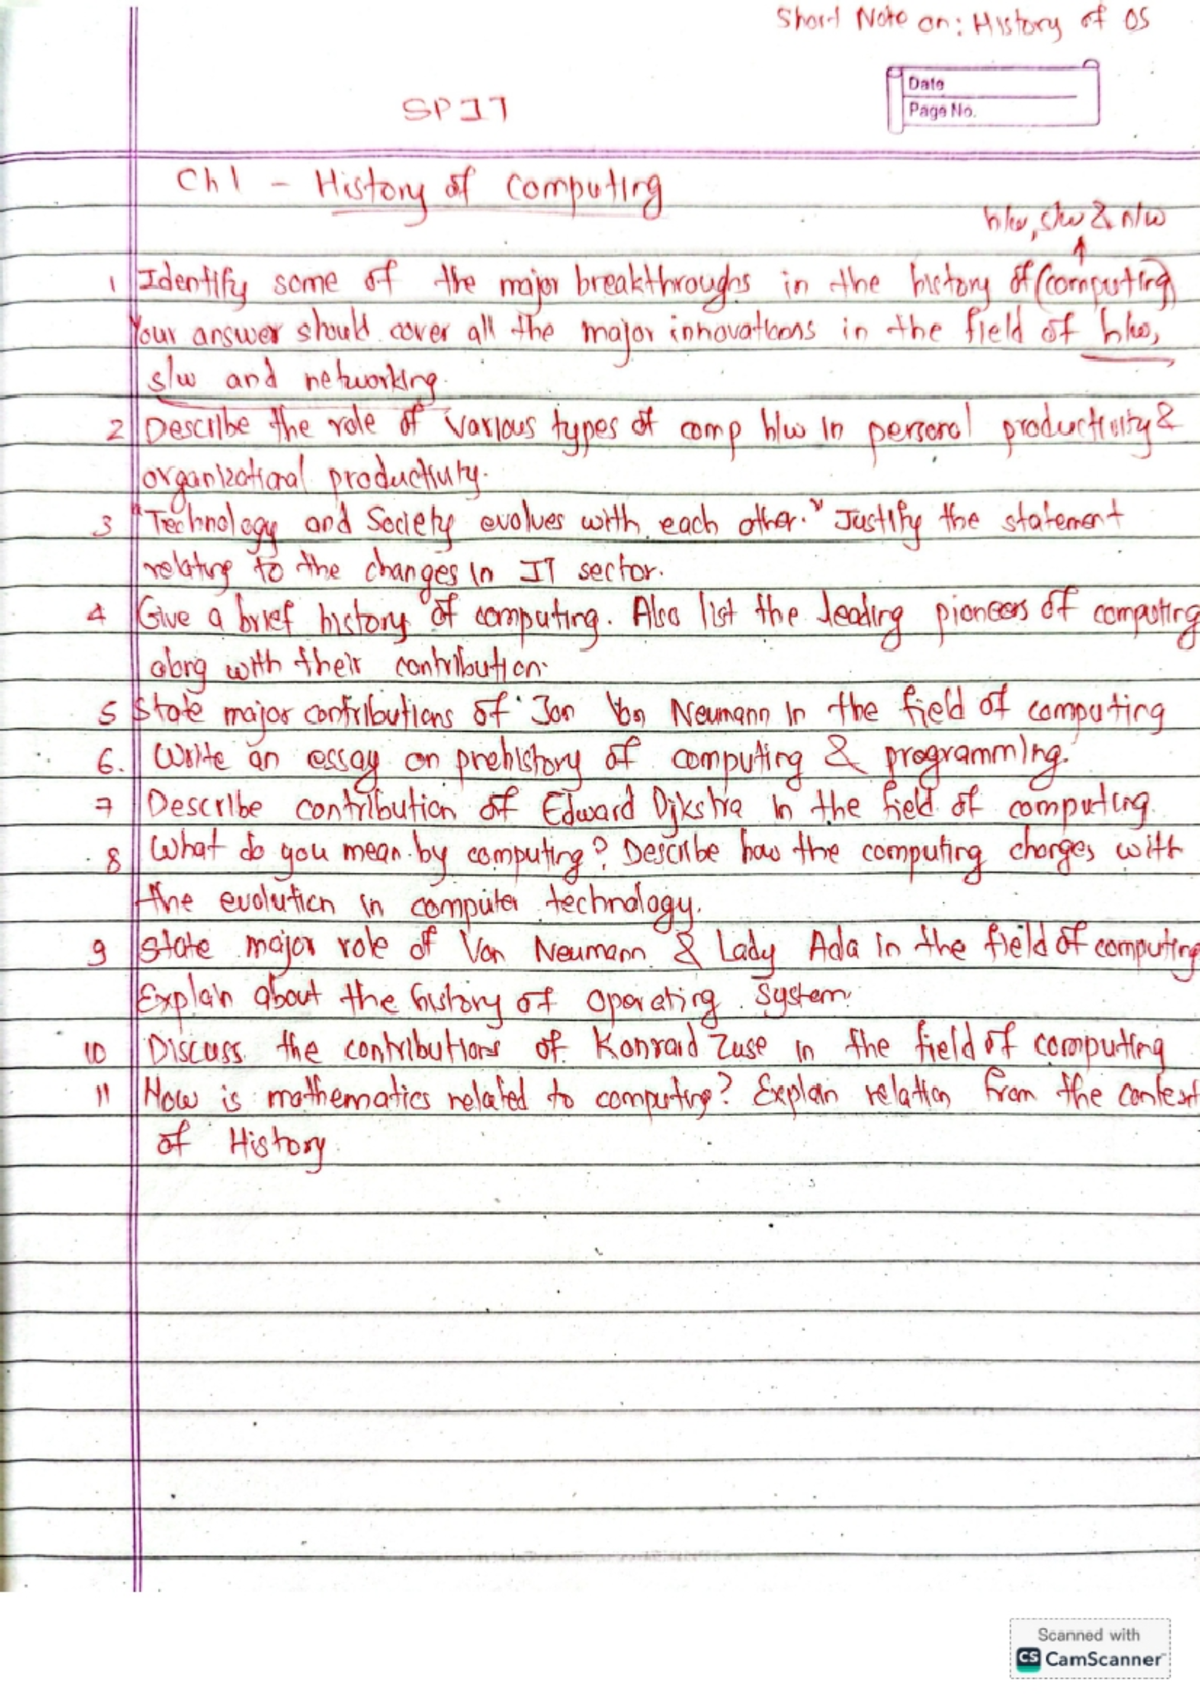 Short Note on: History of OS
Date
Page No.
SPIT
Ch 1 - History of computing
h/w, s/w & n/w
1 Identify some of the major breakthroughs in the history of (computing)
Your answer should cover all the major innovations in the field of h/w,
s/w and networking.
2 Describe the role of various types of comp h/w in personal productivity &
organizational productivity.
3 "Technology and Society evolves with each other." Justify the statement
relating to the changes in IT sector.
4 Give a brief history of computing. Also list the leading pioneers of computing
along with their contribution.
5 State major contributions of Jon Von Neumann in the field of computing
6. Write an essay on prehistory of computing & programming.
7 Describe contribution of Edward Dijkstra in the field of computing.
8 What do you mean by computing? Describe how the computing changes with
the evolution in computer technology.
9 State major role of Von Neumann & Lady Ada in the field of computing
Explain about the history of Operating System.
10 Discuss the contributions of Konraid Zuse in the field of computing
11 How is mathematics related to computing? Explain relation from the context
of History
Scanned with
CS CamScanner